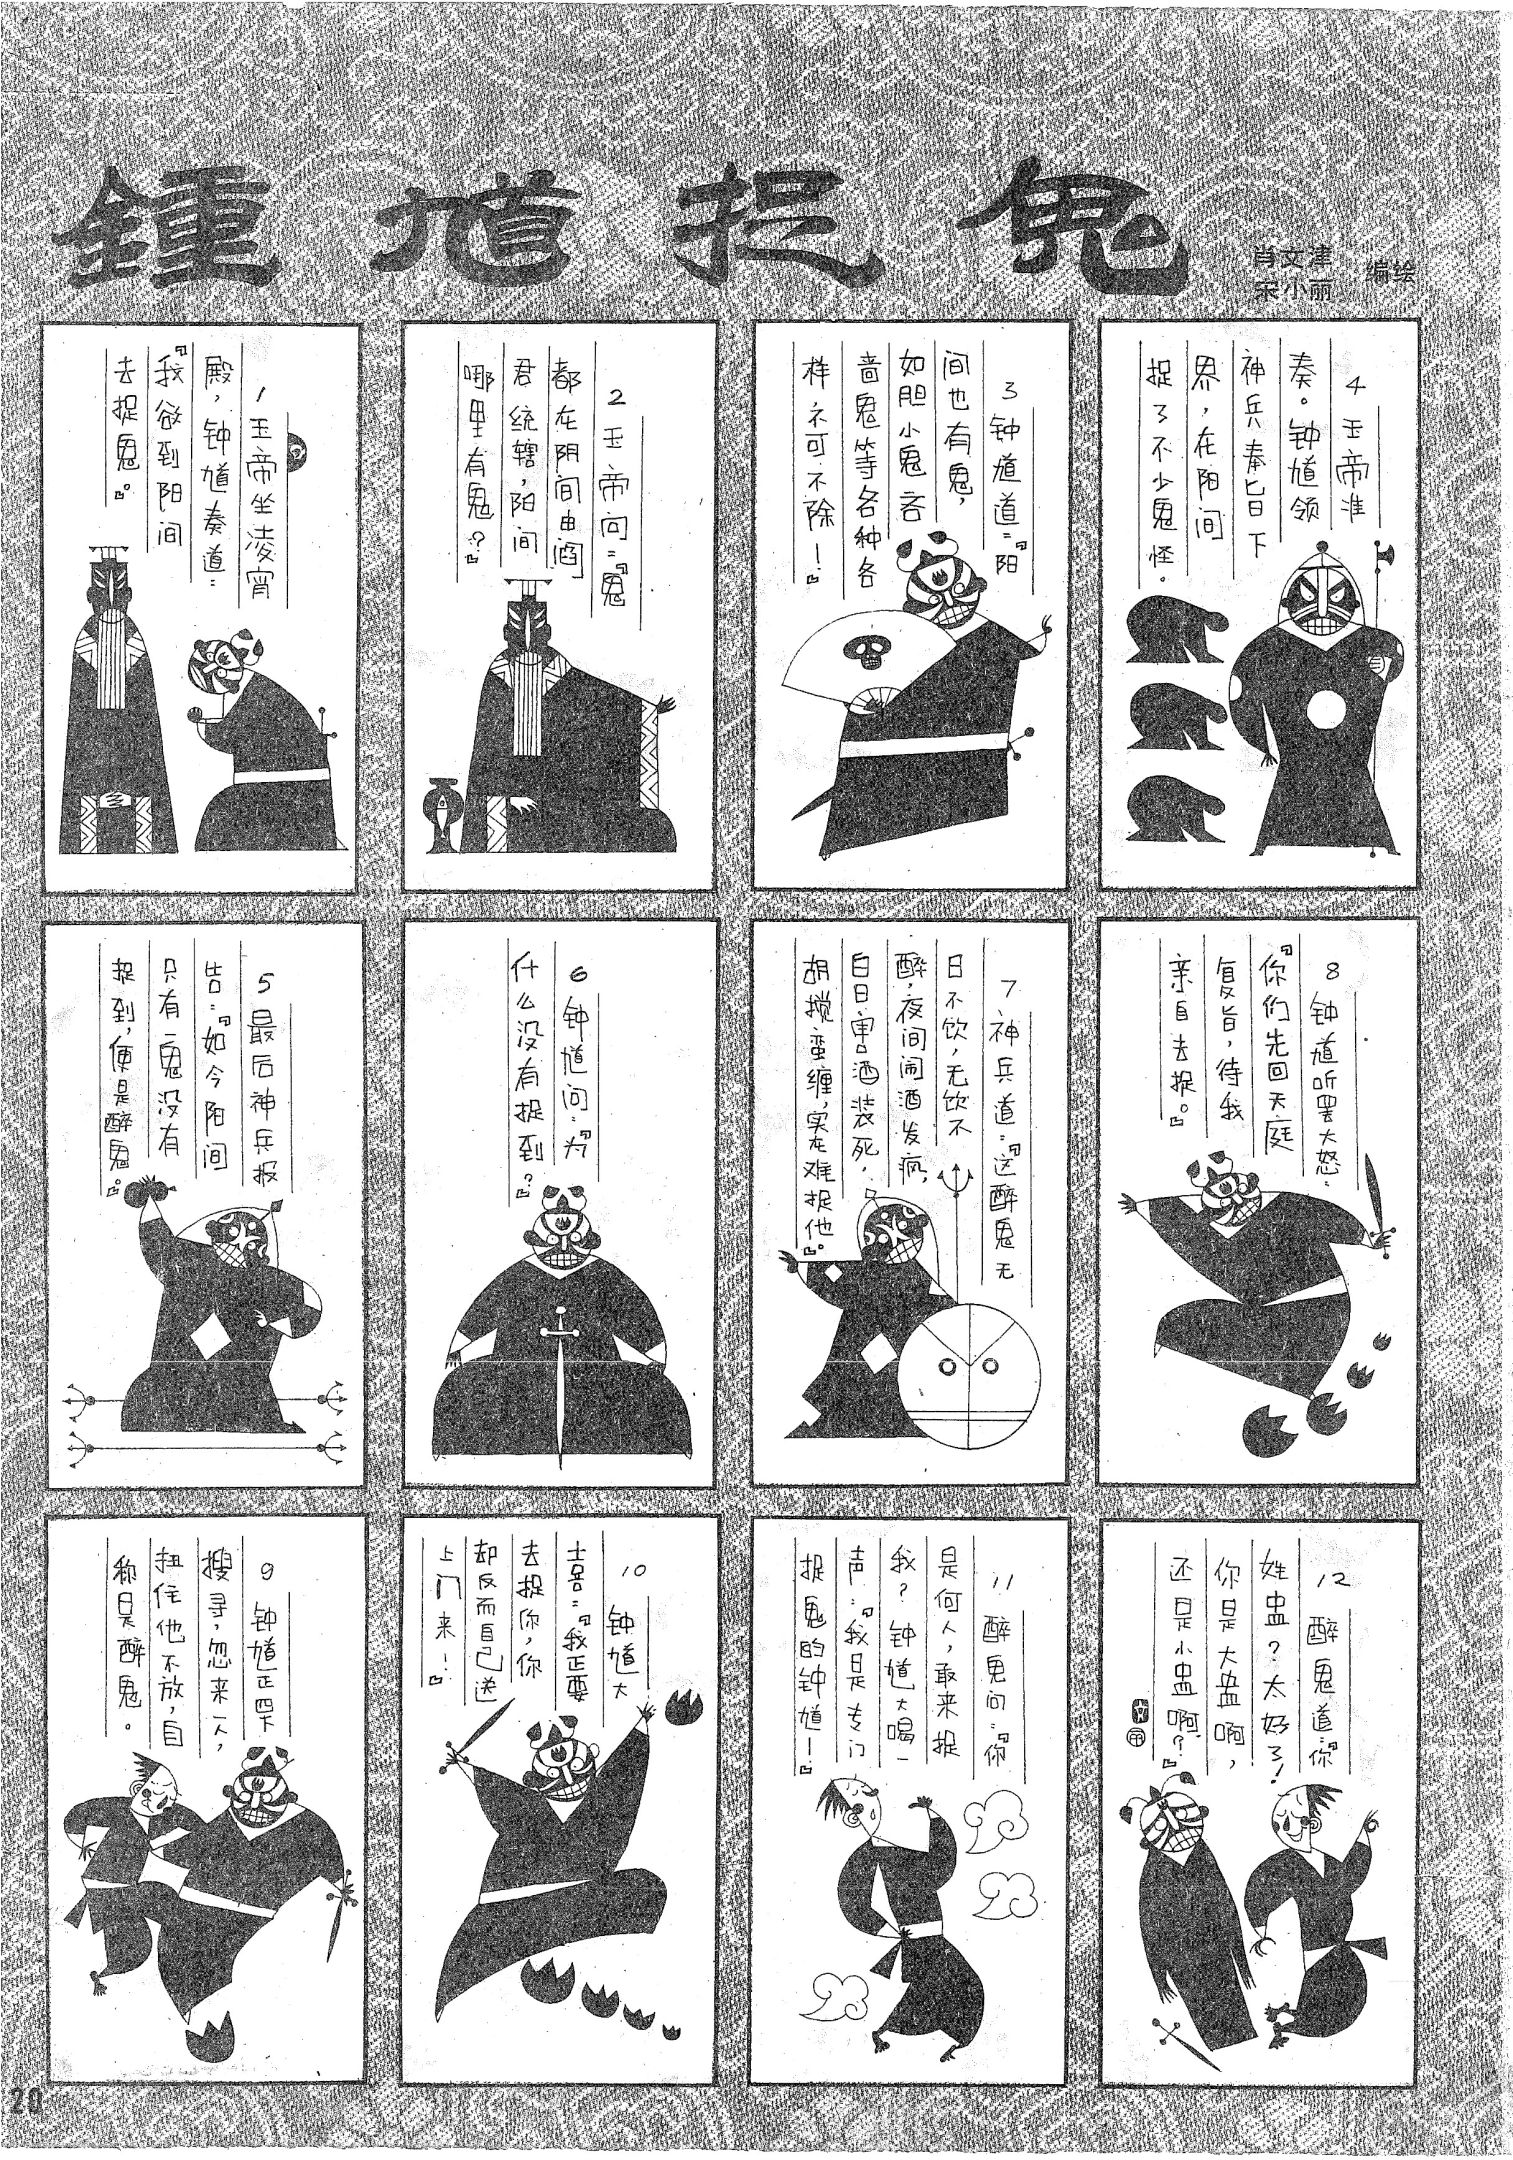 鍾馗捉鬼
肖文津
宋小丽
编绘
1 玉帝坐凌霄
殿，钟馗奏道：
『我欲到阳间
去捉鬼。』
2 玉帝问：『鬼
都在阴间由阎
君统辖，阳间
哪里有鬼？』
3 钟馗道：『阳
间也有鬼，
如胆小鬼吝
啬鬼等各种各
样，不可不除！』
4 玉帝准
奏。钟馗领
神兵奉旨下
界，在阳间
捉了不少鬼怪。
5 最后神兵报
告：『如今阳间
只有一鬼没有
捉到，便是醉鬼。』
6 钟馗问：『为
什么没有捉到？』
7 神兵道：『这醉鬼无
日不饮，无饮不
醉，夜间闹酒发疯，
白日害酒装死，
胡搅蛮缠，实在难捉他。』
8 钟馗听罢大怒：
『你们先回天庭
复旨，待我
亲自去捉。』
9 钟馗正四下
搜寻，忽来一人，
扭住他不放，自
称是醉鬼。
10 钟馗大
喜：『我正要
去捉你，你
却反而自己送
上门来！』
11 醉鬼问：『你
是何人，敢来捉
我？钟馗大喝一
声：『我是专门
捉鬼的钟馗！』
12 醉鬼道：『你
姓盅？太好了！
你是大盅啊，
还是小盅啊？』
20